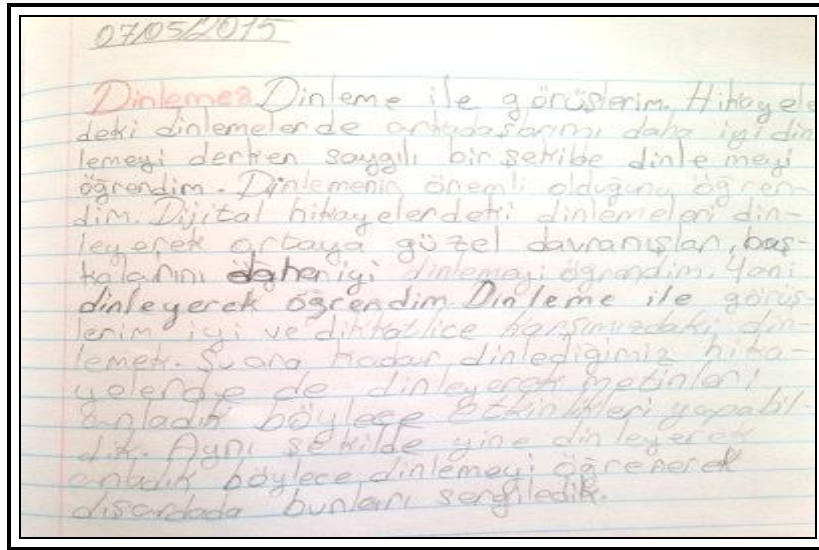 07/05/2015
Dinleme: Dinleme ile görüşlerim. Hikayele
deki dinlemelerde arkadaşlarımı daha iyi din
lemeyi derken saygılı bir şekibe dinlemeyi
öğrendim. Dinlemenin önemli olduğunu öğren
dim. Dijital hikayelerdeki dinlemeleri din-
leyerek ortaya güzel davranışları, baş-
kalarını iyi dinlemeyi öğrendim. Yani
dinleyerek öğrendim. Dinleme ile görüş-
lerim iyi ve dikkatlice karşımızdaki din-
lemek. Şu ana kadar dinlediğimiz hika-
de dinleyerek metinleri
anladık böylece etkinlikleri yapabil-
dik. Aynı şekilde yine dinleyerek
anladık böylece dinlemeyi öğrenerek
dışardada bunları sergiledik.